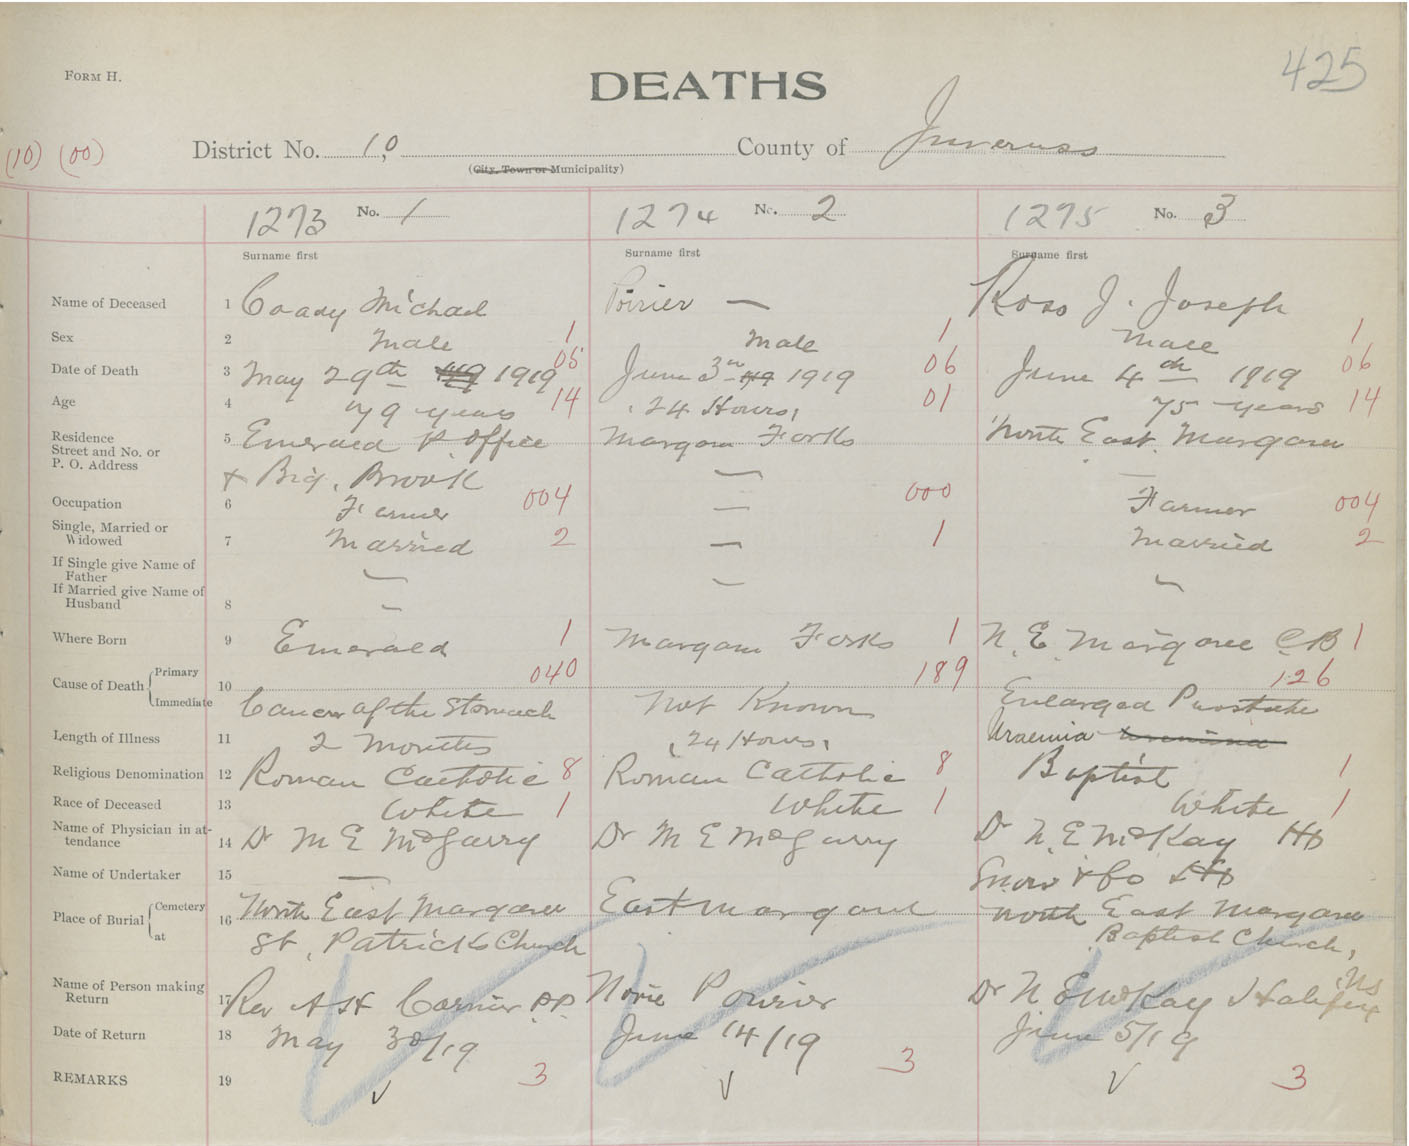 FORM H.
DEATHS
425
(10) (00)
District No. 10
County of Inverness
(City, Town or Municipality)
1273 No. 1
1274 No. 2
1275 No. 3
Surname first
Surname first
Surname first
Name of Deceased 1 Coady Michael
Poirier —
Ross J. Joseph
Sex 2 Male 1
Male 1
Male 1
Date of Death 3 May 29th 1919 05
June 3 1919 06
June 4th 1919 06
Age 4 79 years 14
24 Hours 01
75 years 14
Residence Street and No. or P. O. Address 5 Emerald P. Office
+ Big. Brook
Margaree Forks
—
North East Margaree
—
Occupation 6 Farmer 004
— 000
Farmer 004
Single, Married or Widowed 7 Married 2
— 1
Married 2
If Single give Name of Father
If Married give Name of Husband 8
—
—
—
—
Where Born 9 Emerald 1
Margaree Forks 1
N. E. Margaree C B 1
Cause of Death Primary Immediate 10 040
Cancer of the Stomach
189
Not Known
126
Enlarged Prostate
Uraemia
Length of Illness 11 2 Months
24 Hours
Religious Denomination 12 Roman Catholic 8
Roman Catholic 8
Baptist 1
Race of Deceased 13 White 1
White 1
White 1
Name of Physician in attendance 14 Dr M E McGarry
Dr M E McGarry
Dr N. E McKay
Name of Undertaker 15 —
Snow & Co
Place of Burial Cemetery at 16 North East Margaree
St. Patricks Church
East Margaree
North East Margaree
Baptist Church,
Name of Person making Return 17 Rev A H Cormier P.P.
Poirier
Dr N E McKay Halifax NS
Date of Return 18 May 30/19
June 14/19
June 5/19
REMARKS 19 3
3
3